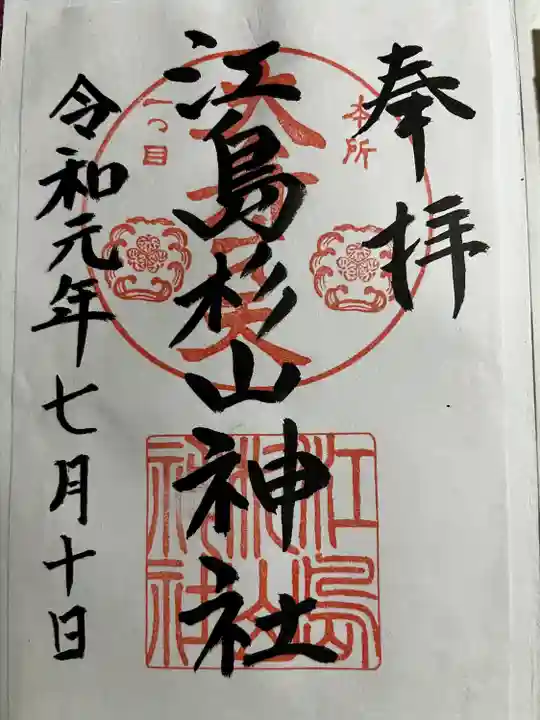 奉拝
本所
一つ目
江島杉山神社
江島杉山神社
令和元年七月十日